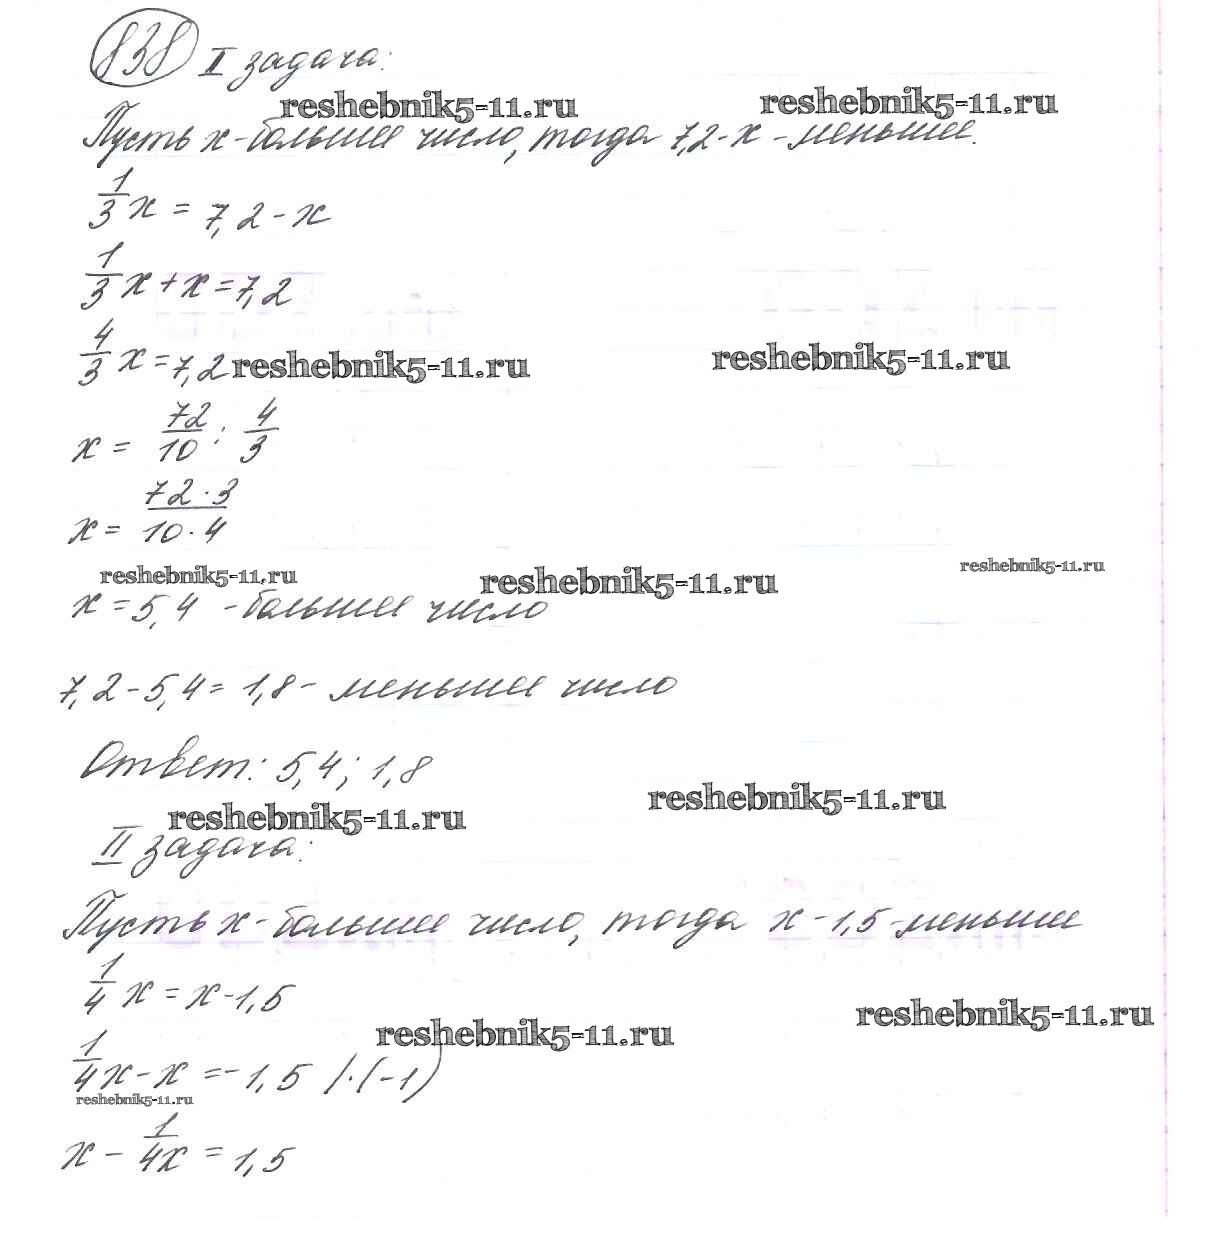 838 I задача:
reshebnik5-11.ru reshebnik5-11.ru
Пусть x - большее число, тогда 7,2 - x - меньшее.
1/3 x = 7,2 - x
1/3 x + x = 7,2
4/3 x = 7,2
reshebnik5-11.ru reshebnik5-11.ru
x = 72/10 : 4/3
x = 72·3/10·4
reshebnik5-11.ru reshebnik5-11.ru reshebnik5-11.ru
x = 5,4 - большее число
7,2 - 5,4 = 1,8 - меньшее число
Ответ: 5,4; 1,8
reshebnik5-11.ru reshebnik5-11.ru
II задача:
Пусть x - большее число, тогда x - 1,5 - меньшее
1/4 x = x - 1,5
reshebnik5-11.ru reshebnik5-11.ru
1/4 x - x = -1,5 /·(-1)
reshebnik5-11.ru
x - 1/4x = 1,5